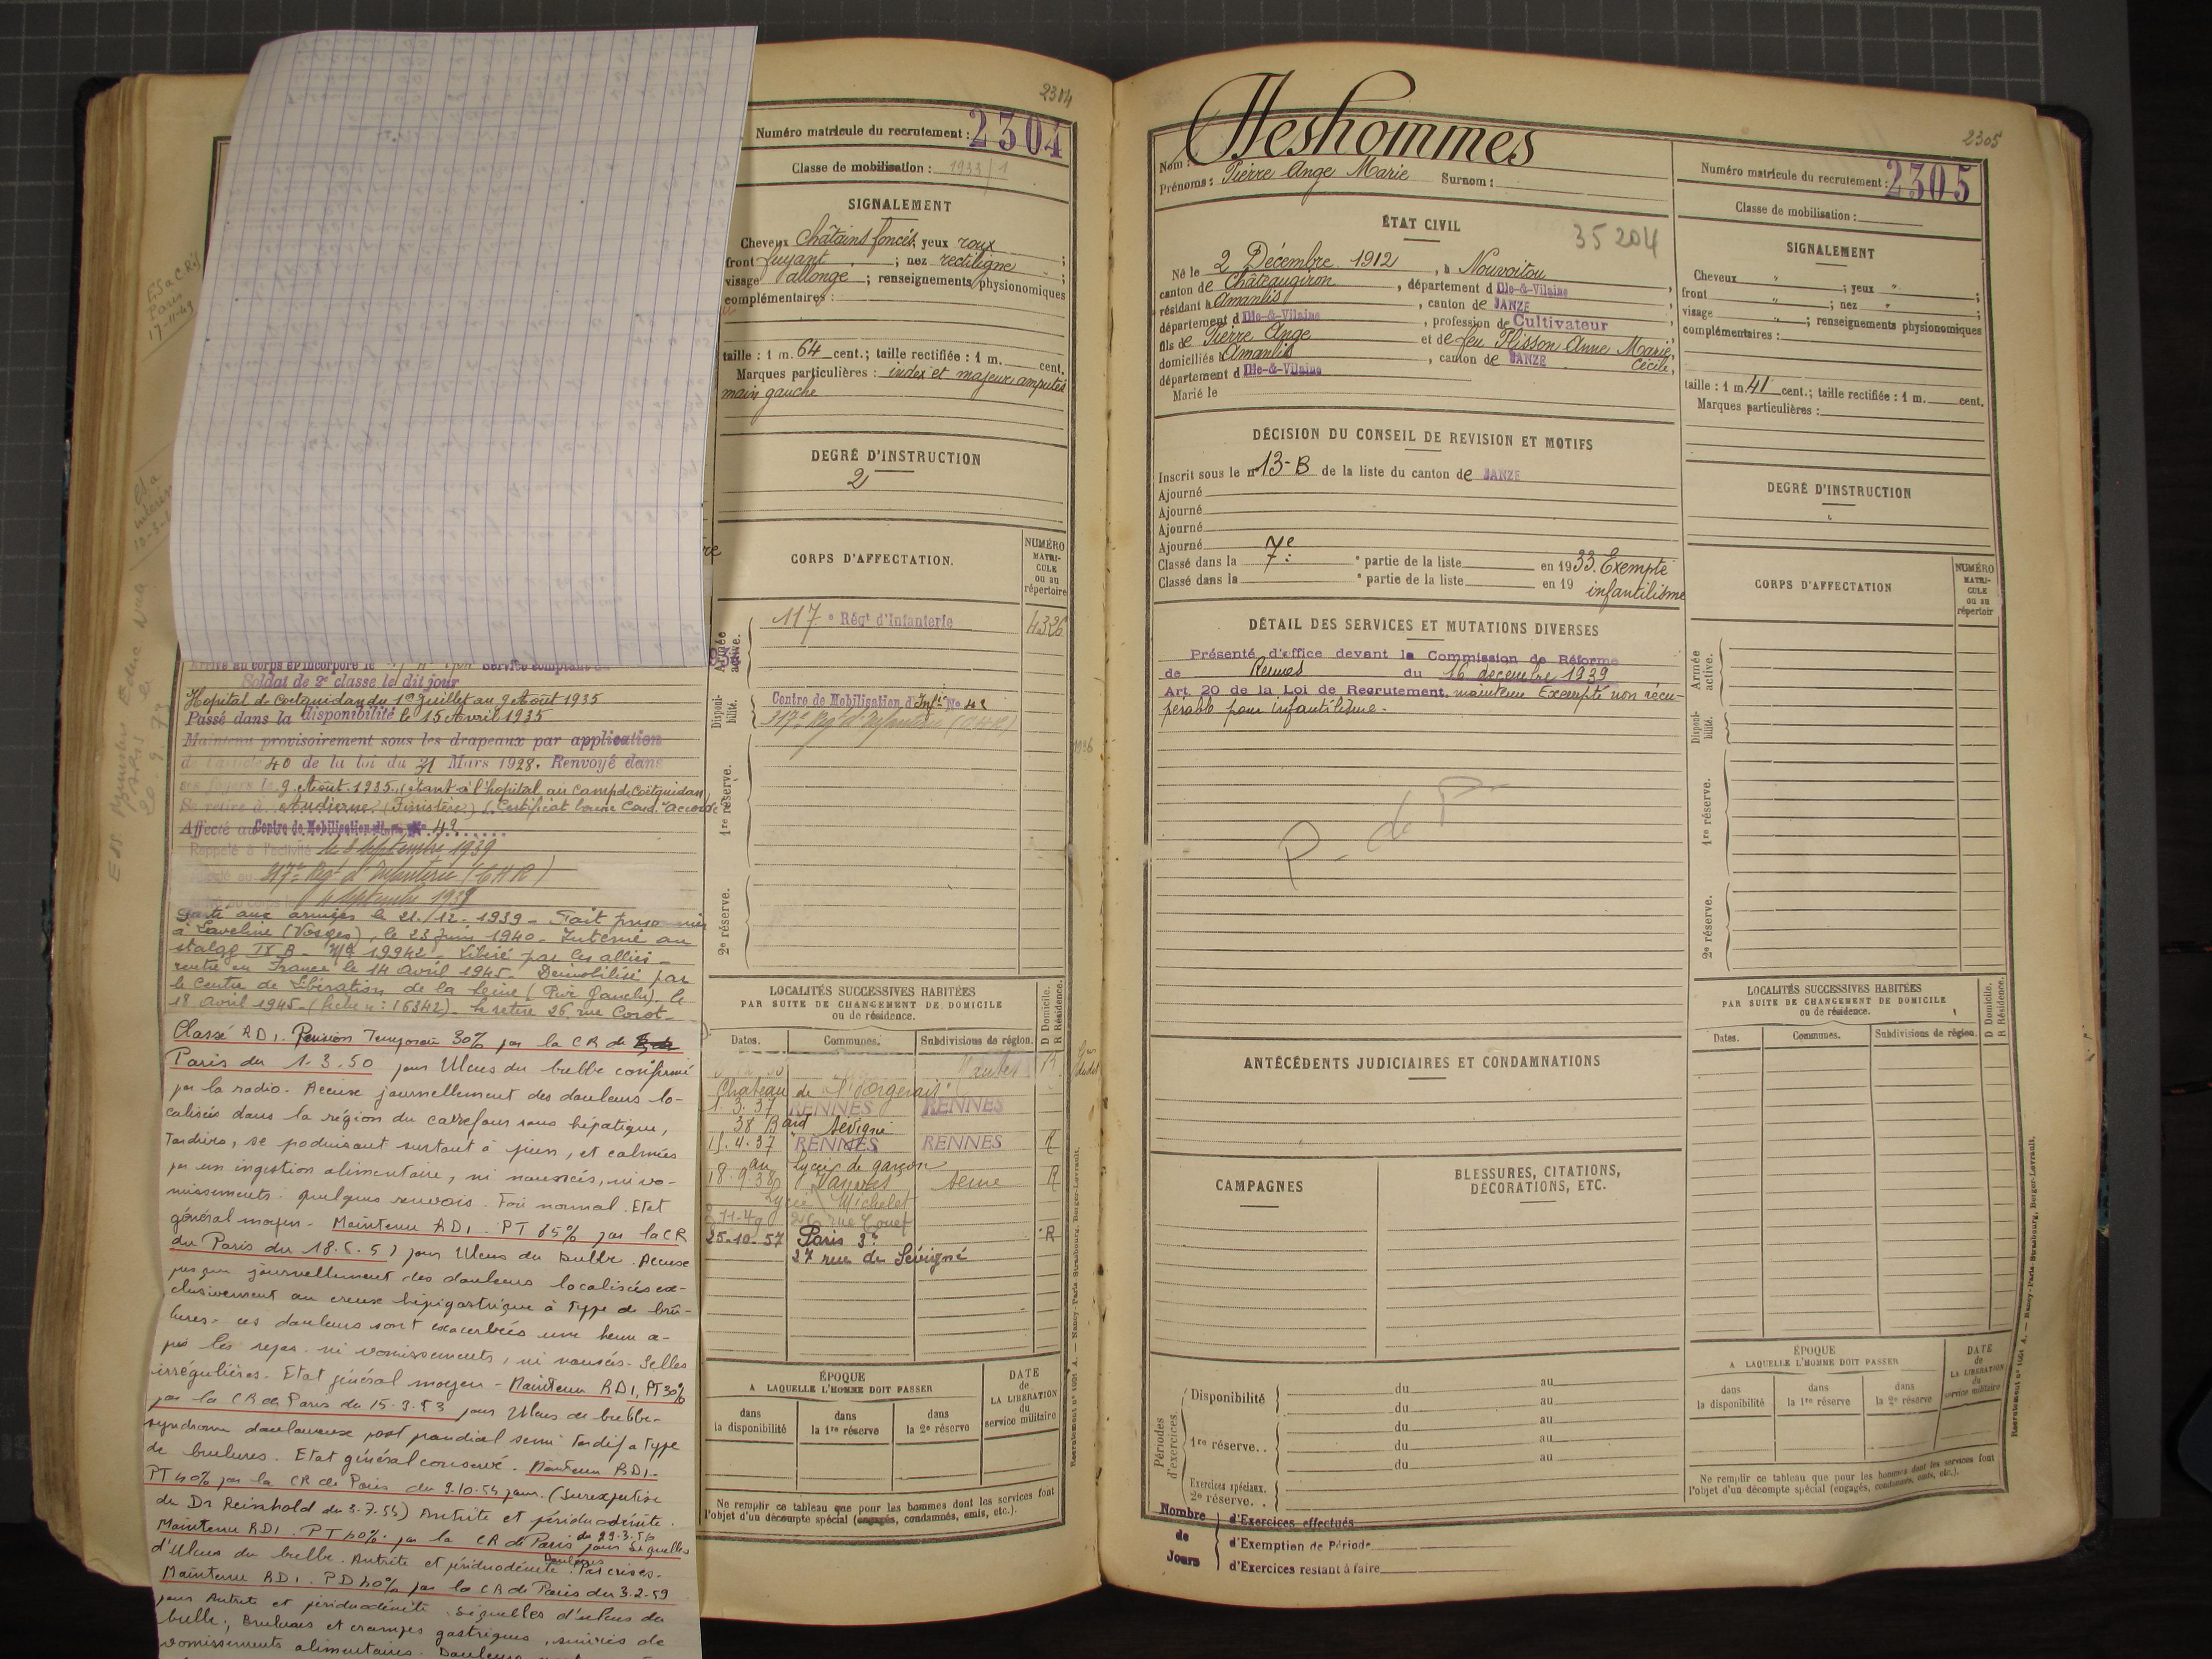 2304
Numéro matricule du recrutement : 2304
Classe de mobilisation : 1933/1
SIGNALEMENT
Cheveux châtains foncés, yeux roux ;
front fuyant ; nez rectiligne ;
visage allongé ; renseignements physionomiques
complémentaires :
taille : 1 m. 64 cent. ; taille rectifiée : 1 m. cent.
Marques particulières : index et majeur amputés
main gauche
DEGRÉ D'INSTRUCTION
2
CORPS D'AFFECTATION.
NUMÉRO
MATRI-
CULE
ou au
répertoire
Armée active.
117e Régt d'Infanterie 4326
Disponibilité.
Centre de Mobilisation d'Infie No 42
317e Rég d'Infanterie (CHR)
1re réserve.
2e réserve.
Soldat de 2e classe le dit jour
Hopital de Coëtquidan du 1er Juillet au 9 Août 1935
Passé dans la disponibilité le 15 Avril 1935
Maintenu provisoirement sous les drapeaux par application
de l'article 40 de la loi du 31 Mars 1928. Renvoyé dans
ses foyers le 9 Août 1935. (étant à l'hopital au Camp de Coëtquidan)
Se retire à Audierne (Finistère) (Certificat bonne Cond. Accordé
Affecté au Centre de Mobilisation d'Inf. No 42
Rappelé à l'activité le 3 Septembre 1939
317e Régt d'Infanterie (CHR)
4 septembre 1939
Parti aux armées le 21/12-1939 - Fait prisonnier
à Laveline (Vosges), le 23 juin 1940 - Interné au
stalag IX B - Me 19942 - Libéré par les alliés -
rentré en France le 14 avril 1945 - Démobilisé par
le Centre de Libération de la Seine (Rive Gauche) le
18 avril 1945 - (fiche n: 16342) - Se retire 26 rue Corot -
Classé RD1. Pension Temporaire 30% par la CR de
Paris du 1.3.50 pour Ulcus du bulbe confirmé
par la radio. Accuse journellement des douleurs lo-
calisées dans la région du carrefour sous hépatique,
Tardives, se poduisant surtout à jeun, et calmées
par un ingestion alimentaire, ni nausées, ni vo-
missements. quelques renvois. Foie normal. Etat
général moyen - Maintenu RD1. PT 15% par la CR
du Paris du 18.6.51 pour Ulcus du bulbe. Accuse
presque journellement des douleurs localisées ex-
clusivement au creux hépigastrique à type de brû-
lures - ces douleurs sont exacerbées une heure a-
près les repas. ni vomissements, ni nausées. Selles
irrégulières. Etat général moyen - Maintenu RD1, PT 30%
par la CR de Paris du 15.3.53 pour Ulcus du bulbe -
syndrome douloureux post prandial semi tardif a type
de brulures. Etat général conservé. Maintenu RD1.
PT 40% par la CR de Paris du 9.10.54 pour. (surexpertise
du Dr Reinhold du 3.7.54) Antrite et périduodénite.
Maintenu RD1. PT 40% par la CR de Paris du 29.3.56 pour Séquelles
d'Ulcus du bulbe. Antrite et périduodénite. Douleurs Par crises.
Maintenu RD1. PD 40% par la CR de Paris du 3.2.59
pour Antrite et périduodénite. Séquelles d'ulcus du
bulbe, Brulures et crampes gastriques, suivies de
vomissements alimentaires.
LOCALITÉS SUCCESSIVES HABITÉES
PAR SUITE DE CHANGEMENT DE DOMICILE
ou de résidence.
D Domicile.
R Résidence.
Dates. Communes. Subdivisions de région.
Chateau de
1. 3. 37 RENNES RENNES
38 Bard Sévigné
15. 4. 37 RENNES RENNES R
au Lycée de garçons
18. 9. 38 Vanves Seine R
Lycée Michelet
25-10-57 Paris 3e R
27 rue de Sévigné
ÉPOQUE
A LAQUELLE L'HOMME DOIT PASSER
dans la disponibilité
dans la 1re réserve
dans la 2e réserve
DATE
de
LA LIBÉRATION
du
service militaire
Ne remplir ce tableau que pour les hommes dont les services font
l'objet d'un décompte spécial (engagés, condamnés, omis, etc.).
2305
Nom : Deshommes
Prénoms : Pierre Ange Marie Surnom :
ÉTAT CIVIL
35204
Né le 2 Décembre 1912, à Nouvoitou
canton de Châteaugiron, département d'Ille-&-Vilaine
résidant à Amanlis, canton de JANZE
département d'Ille-&-Vilaine, profession de Cultivateur
fils de Pierre Ange et de feu Plisson Anne Marie,
Cécile,
domiciliés à Amanlis, canton de JANZE
département d'Ille-&-Vilaine
Marié le
DÉCISION DU CONSEIL DE REVISION ET MOTIFS
Inscrit sous le n° 13-B de la liste du canton de JANZE
Ajourné
Ajourné
Ajourné
Ajourné
Classé dans la 7e partie de la liste en 1933. Exempté
Classé dans la e partie de la liste en 19 infantilisme
DÉTAIL DES SERVICES ET MUTATIONS DIVERSES
Présenté d'office devant la Commission de Réforme
de Rennes du 16 décembre 1939
Art. 20 de la Loi de Recrutement. maintenu Exempté non récu-
pérable pour infantilisme.
P. de P.
ANTÉCÉDENTS JUDICIAIRES ET CONDAMNATIONS
CAMPAGNES
BLESSURES, CITATIONS,
DÉCORATIONS, ETC.
Périodes d'exercices.
Disponibilité du au
du au
1re réserve.. du au
du au
du au
Exercices spéciaux.
2e réserve..
Nombre de Jours
d'Exercices effectués
d'Exemption de Période
d'Exercices restant à faire
Numéro matricule du recrutement : 2305
Classe de mobilisation :
SIGNALEMENT
Cheveux " ; yeux " ;
front " ; nez " ;
visage " ; renseignements physionomiques
complémentaires :
taille : 1 m. 41 cent. ; taille rectifiée : 1 m. cent.
Marques particulières :
DEGRÉ D'INSTRUCTION
CORPS D'AFFECTATION
NUMÉRO
MATRI-
CULE
ou au
répertoir
Armée active.
Disponibilité.
1re réserve.
2e réserve.
LOCALITÉS SUCCESSIVES HABITÉES
PAR SUITE DE CHANGEMENT DE DOMICILE
ou de résidence.
D Domicile.
R Résidence.
Dates. Communes. Subdivisions de région.
ÉPOQUE
A LAQUELLE L'HOMME DOIT PASSER
dans la disponibilité
dans la 1re réserve
dans la 2e réserve
DATE
de
LA LIBÉRATION
du
service militaire
Ne remplir ce tableau que pour les hommes dont les services font
l'objet d'un décompte spécial (engagés, condamnés, omis, etc.).